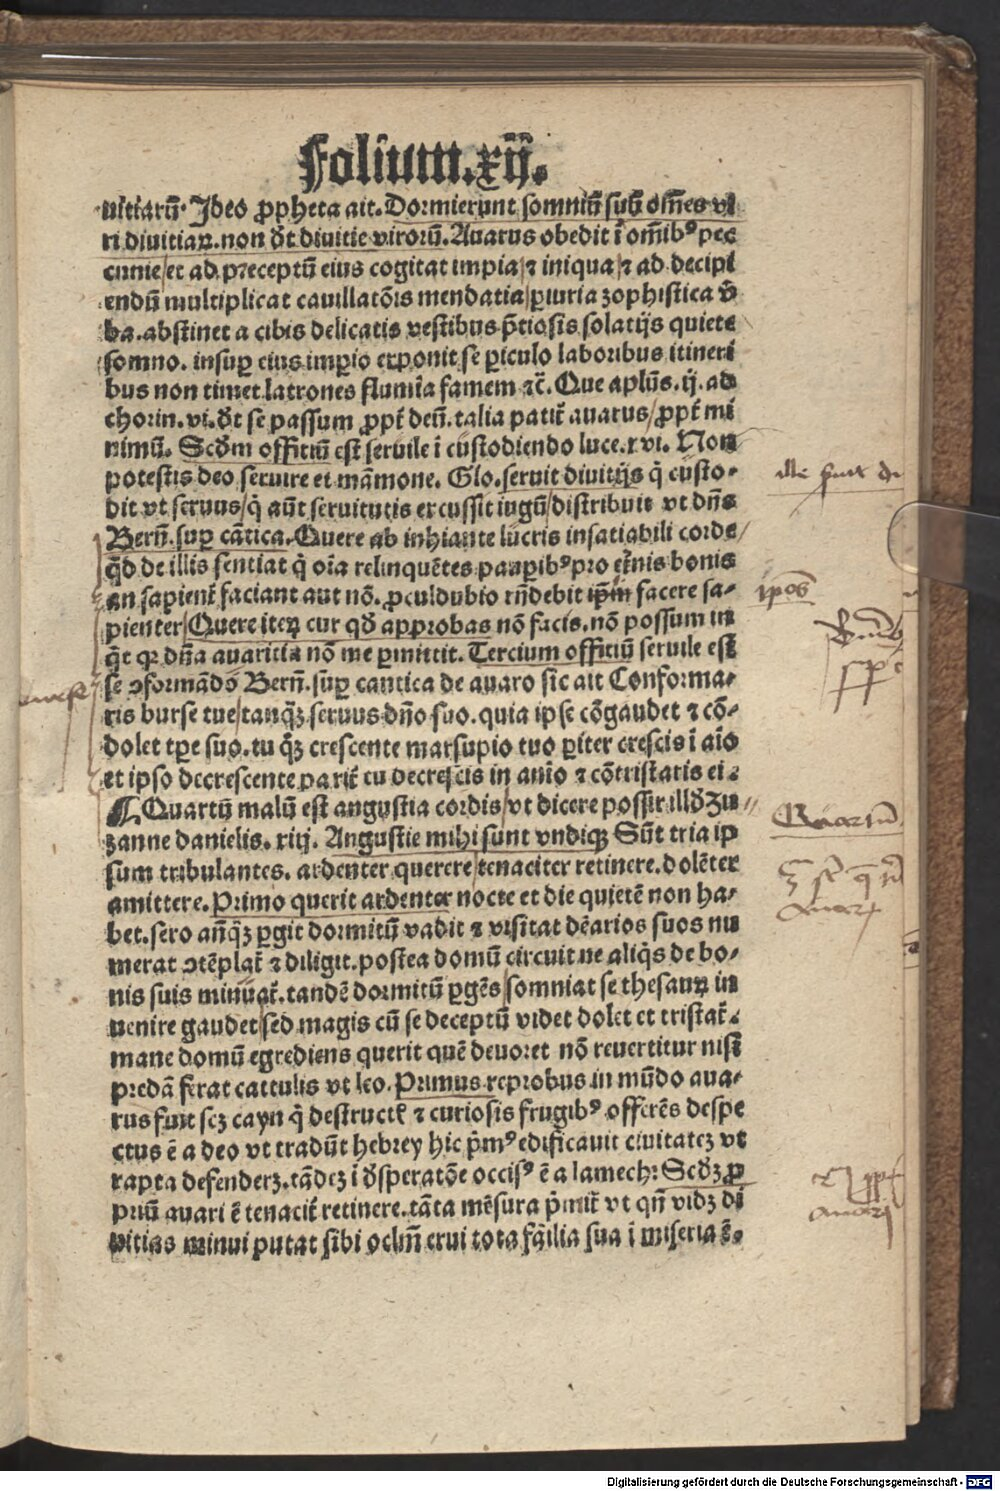 Folium.xij.
uitiarū. Ideo ꝓpheta ait. Dormierunt somniū suū om̄es vi
ri diuitiaꝝ. non ... diuitie virorū. Auarus obedit ī om̄ibꝰ pec
cunie/et ad preceptū eius cogitat impia/⁊ iniqua/⁊ ad decipi
endū multiplicat cauillatōis mendatia/ꝑiuria zophistica v̄
ba. abstinet a cibis delicatis vestibus p̄tiosis solatijs quiete
somno. insuꝑ eius imꝑio exponit se ꝑiculo laboribus itineri
bus non timet latrones flumīa famem ⁊c̄. Que aplūs. ij. ad
chorin. vi. ... se passum ꝓpt̄ deū. talia patit̄ auarus/ꝓpt̄ mi
nimū. Scd̄m offitiū est seruile ī custodiendo luce. xvi. Non
potestis deo seruire et māmone. Glo. seruit diuitijs q̄ custo-
dit vt seruus/q̄ aūt seruitutis excussit iugū/distribuit vt dn̄s
Bern̄. suꝑ cātica. Quere ab inhiante lucris insatiabili corde/
q̄d de illis sentiat q̄ oīa relinquētes pauꝑibꝰ pro et̄nis bonis
an sapient̄ faciant aut nō. ꝓculdubio rn̄debit ip̄m facere sa-
pienter/Quere iteꝝ cur qd̄ approbas nō facis. nō possum in
q̄t qꝛ dn̄a auaritia nō me ꝑmittit. Tercium offitiū seruile est
se ꝯformādo Bern̄. suꝑ cantica de auaro sic ait Conforma-
ris burse tue/tanqꝫ seruus dn̄o suo. quia ipse cōgaudet ⁊ cō-
dolet tꝑe suo. tu qꝫ crescente marsupio tuo ꝑiter crescis ī aīo
et ipso decrescente parit̄ cū decrescis in anīo ⁊ cōtristaris ei.
¶ Quartū malū est angustia cordis/vt dicere possit illd̄ Zu//
zanne danielis. xiij. Angustie mihi sunt vndiqꝫ Sūt tria ip
sum tribulantes. ardenter querere/tenaciter retinere. dolēter
amittere. Primo querit ardenter nocte et die quietē non ha-
bet. sero an̄qꝫ ꝑgit dormitū vadit ⁊ visitat dēarios suos nu
merat ꝯtēplat̄ ⁊ diligit. postea domū circuit ne aliq̄s de bo-
nis suis minuat̄. tandē dormitū ꝑgēs/somniat se thesauꝝ in
uenire gaudet/sed magis cū se deceptū videt dolet et tristat̄.
mane domū egrediens querit quē deuoret nō reuertitur nisi
predā ferat cattulis vt leo. Primus reprobus in mūdo aua-
rus fuit scꝫ cayn q̄ destructꝭ ⁊ curiosis frugibꝰ offerēs despe
ctus ē a deo vt tradūt hebrey hic p̄mꝰ edificauit ciuitateꝫ vt
rapta defenderꝫ. tādeꝫ ī d̄speratōe occisꝰ ē a lamech: Scd̄ꝫ ꝓ
priū auari ē tenacit̄ retinere. tāta mēsura p̄mit̄ vt qn̄ videꝫ di
uitias minui putat sibi oclm̄ erui tota fāilia sua ī miseria ē.
ip̄os
Quartū
auari
auari
Digitalisierung gefördert durch die Deutsche Forschungsgemeinschaft - DFG